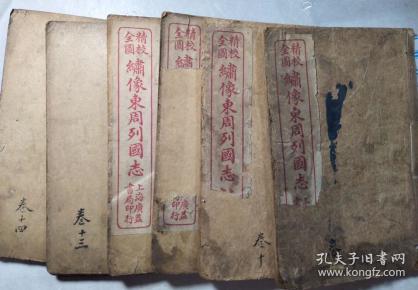 卷十四
卷十三
精校
全圖
繡像東周列國志
上海廣益
書局印行
精校
全圖
繡
廣益
印行
精校
全圖
繡像東周列國志
卷十
精校
全圖
繡像東周列國志
上
孔夫子旧书网
www.kongfz.com